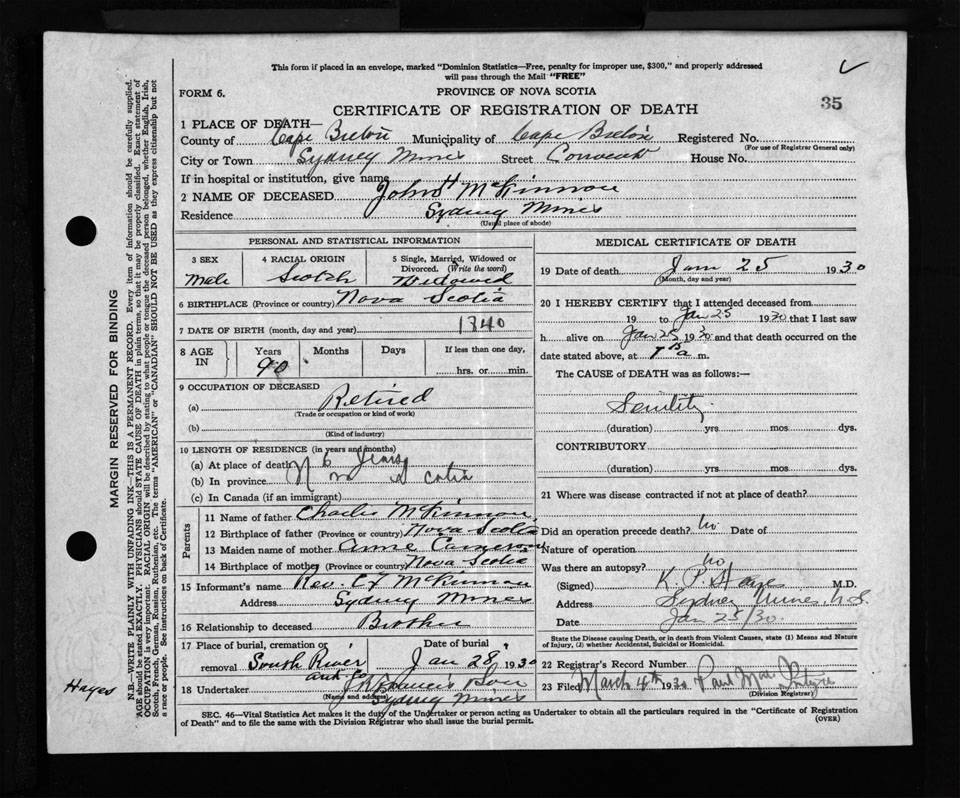 This form if placed in an envelope, marked "Dominion Statistics—Free, penalty for improper use, $300," and properly addressed
will pass through the Mail "FREE"
FORM 6.
PROVINCE OF NOVA SCOTIA
CERTIFICATE OF REGISTRATION OF DEATH
35
1 PLACE OF DEATH—
County of Cape Breton Municipality of Cape Breton Registered No.
(For use of Registrar General only)
City or Town Sydney Mines Street Convent House No.
If in hospital or institution, give name
2 NAME OF DECEASED John McKinnon
Residence Sydney Mines
(Usual place of abode)
PERSONAL AND STATISTICAL INFORMATION
3 SEX 4 RACIAL ORIGIN 5 Single, Married, Widowed or
Divorced. (Write the word)
Male Scotch Widowed
6 BIRTHPLACE (Province or country) Nova Scotia
7 DATE OF BIRTH (month, day and year) 1840
8 AGE IN Years Months Days If less than one day,
90 hrs. or min.
9 OCCUPATION OF DECEASED
(a) Retired
(Trade or occupation or kind of work)
(b)
(Kind of industry)
10 LENGTH OF RESIDENCE (in years and months)
(a) At place of death 6 years
(b) In province Nova Scotia
(c) In Canada (if an immigrant)
Parents
11 Name of father Charles McKinnon
12 Birthplace of father (Province or country) Nova Scotia
13 Maiden name of mother Anne Cameron
14 Birthplace of mother (Province or country) Nova Scotia
15 Informant's name Rev. McKinnon
Address Sydney Mines
16 Relationship to deceased Brother
17 Place of burial, cremation or Date of burial
removal South River Jan 28 1930
18 Undertaker Francis
(Name and address) Sydney Mines
MEDICAL CERTIFICATE OF DEATH
19 Date of death Jan 25 1930
(Month, day and year)
20 I HEREBY CERTIFY that I attended deceased from
19 to Jan 25 1930 that I last saw
h alive on Jan 25 1930 and that death occurred on the
date stated above, at a m.
The CAUSE of DEATH was as follows:—
Senility
(duration) yrs mos dys.
CONTRIBUTORY
(duration) yrs mos dys.
21 Where was disease contracted if not at place of death?
Did an operation precede death? No Date of
Nature of operation
Was there an autopsy? No
(Signed) K. P. Hayes M.D.
Address Sydney Mines, N.S.
Date Jan 25/30
State the Disease causing Death, or in death from Violent Causes, state (1) Means and Nature
of Injury, (2) whether Accidental, Suicidal or Homicidal.
22 Registrar's Record Number
23 Filed March 4th 1930 Paul
(Division Registrar)
SEC. 46—Vital Statistics Act makes it the duty of the Undertaker or person acting as Undertaker to obtain all the particulars required in the "Certificate of Registration
of Death" and to file the same with the Division Registrar who shall issue the burial permit.
(OVER)
Hayes
MARGIN RESERVED FOR BINDING
N.B.—WRITE PLAINLY WITH UNFADING INK—THIS IS A PERMANENT RECORD. Every item of information should be carefully supplied.
AGE should be stated EXACTLY. PHYSICIANS should STATE CAUSE OF DEATH in plain terms, so that it may be properly classified. Exact statement of
OCCUPATION is very important. RACIAL ORIGIN will be described by stating to what people or tongue the deceased person belonged, whether English, Irish,
Scotch, French, German, Russian, Ruthenian, etc. The terms "AMERICAN" or "CANADIAN" SHOULD NOT BE USED as they express citizenship but not
a race or people. See instructions on back of Certificate.